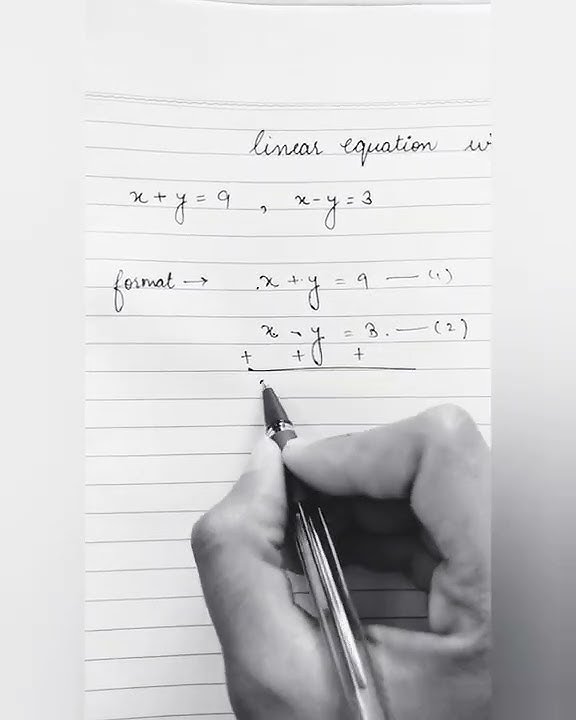 linear equation
x + y = 9 , x - y = 3
format → x + y = 9 — (1)
x - y = 3. — (2)
+ + +